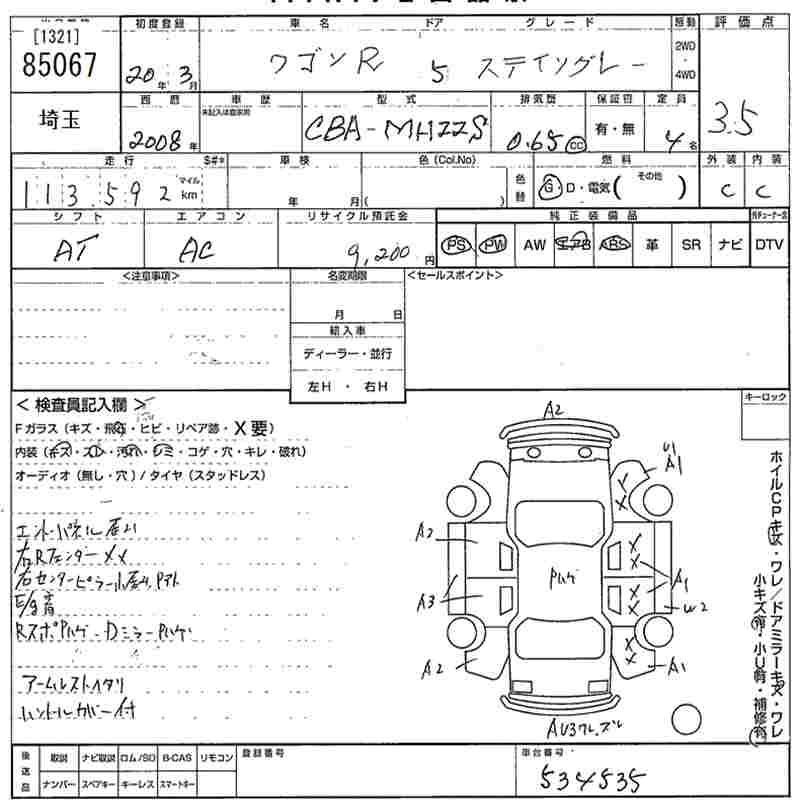 [1321]
85067
初度登録
20年 3月
車名 ドア グレード
ワゴンR 5 スティングレー
駆動
2WD
・
4WD
評価点
3.5
埼玉
西暦
2008年
車歴
未記入は自家用
型式
CBA-MH22S
排気量
0.65 CC
保証書
有・無
定員
4名
走行 S#*
113,592 マイル km
車検
年 月
色(Col.No)
( )
色替
燃料
G・D・電気( その他 )
外装
C
内装
C
シフト
AT
エアコン
AC
リサイクル預託金
9,200円
純正装備品
PS PW AW エアB ABS 革 SR ナビ DTV
<注意事項>
名変期限
月 日
輸入車
ディーラー・並行
左H ・ 右H
<セールスポイント>
<検査員記入欄>
Fガラス(キズ・飛石・ヒビ・リペア跡・X要)
内装(キズ・スレ・汚れ・シミ・コゲ・穴・キレ・破れ)
オーディオ(無し・穴)/タイヤ(スタッドレス)
右Rフェンダーメメ
E/g音
アームレストイタリ
ハンドルカバー付
キーロック
ホイルCPキズ・ワレ/ドアミラーキズ・ワレ
小キズ有・小U有・補修有
A2
U1
A1
A2
A3
A2
A1
W2
A1
後送品
取説 ナビ取説 ロム/SD B-CAS リモコン
ナンバー スペアキー キーレス スマートキー
登録番号
車台番号
534535